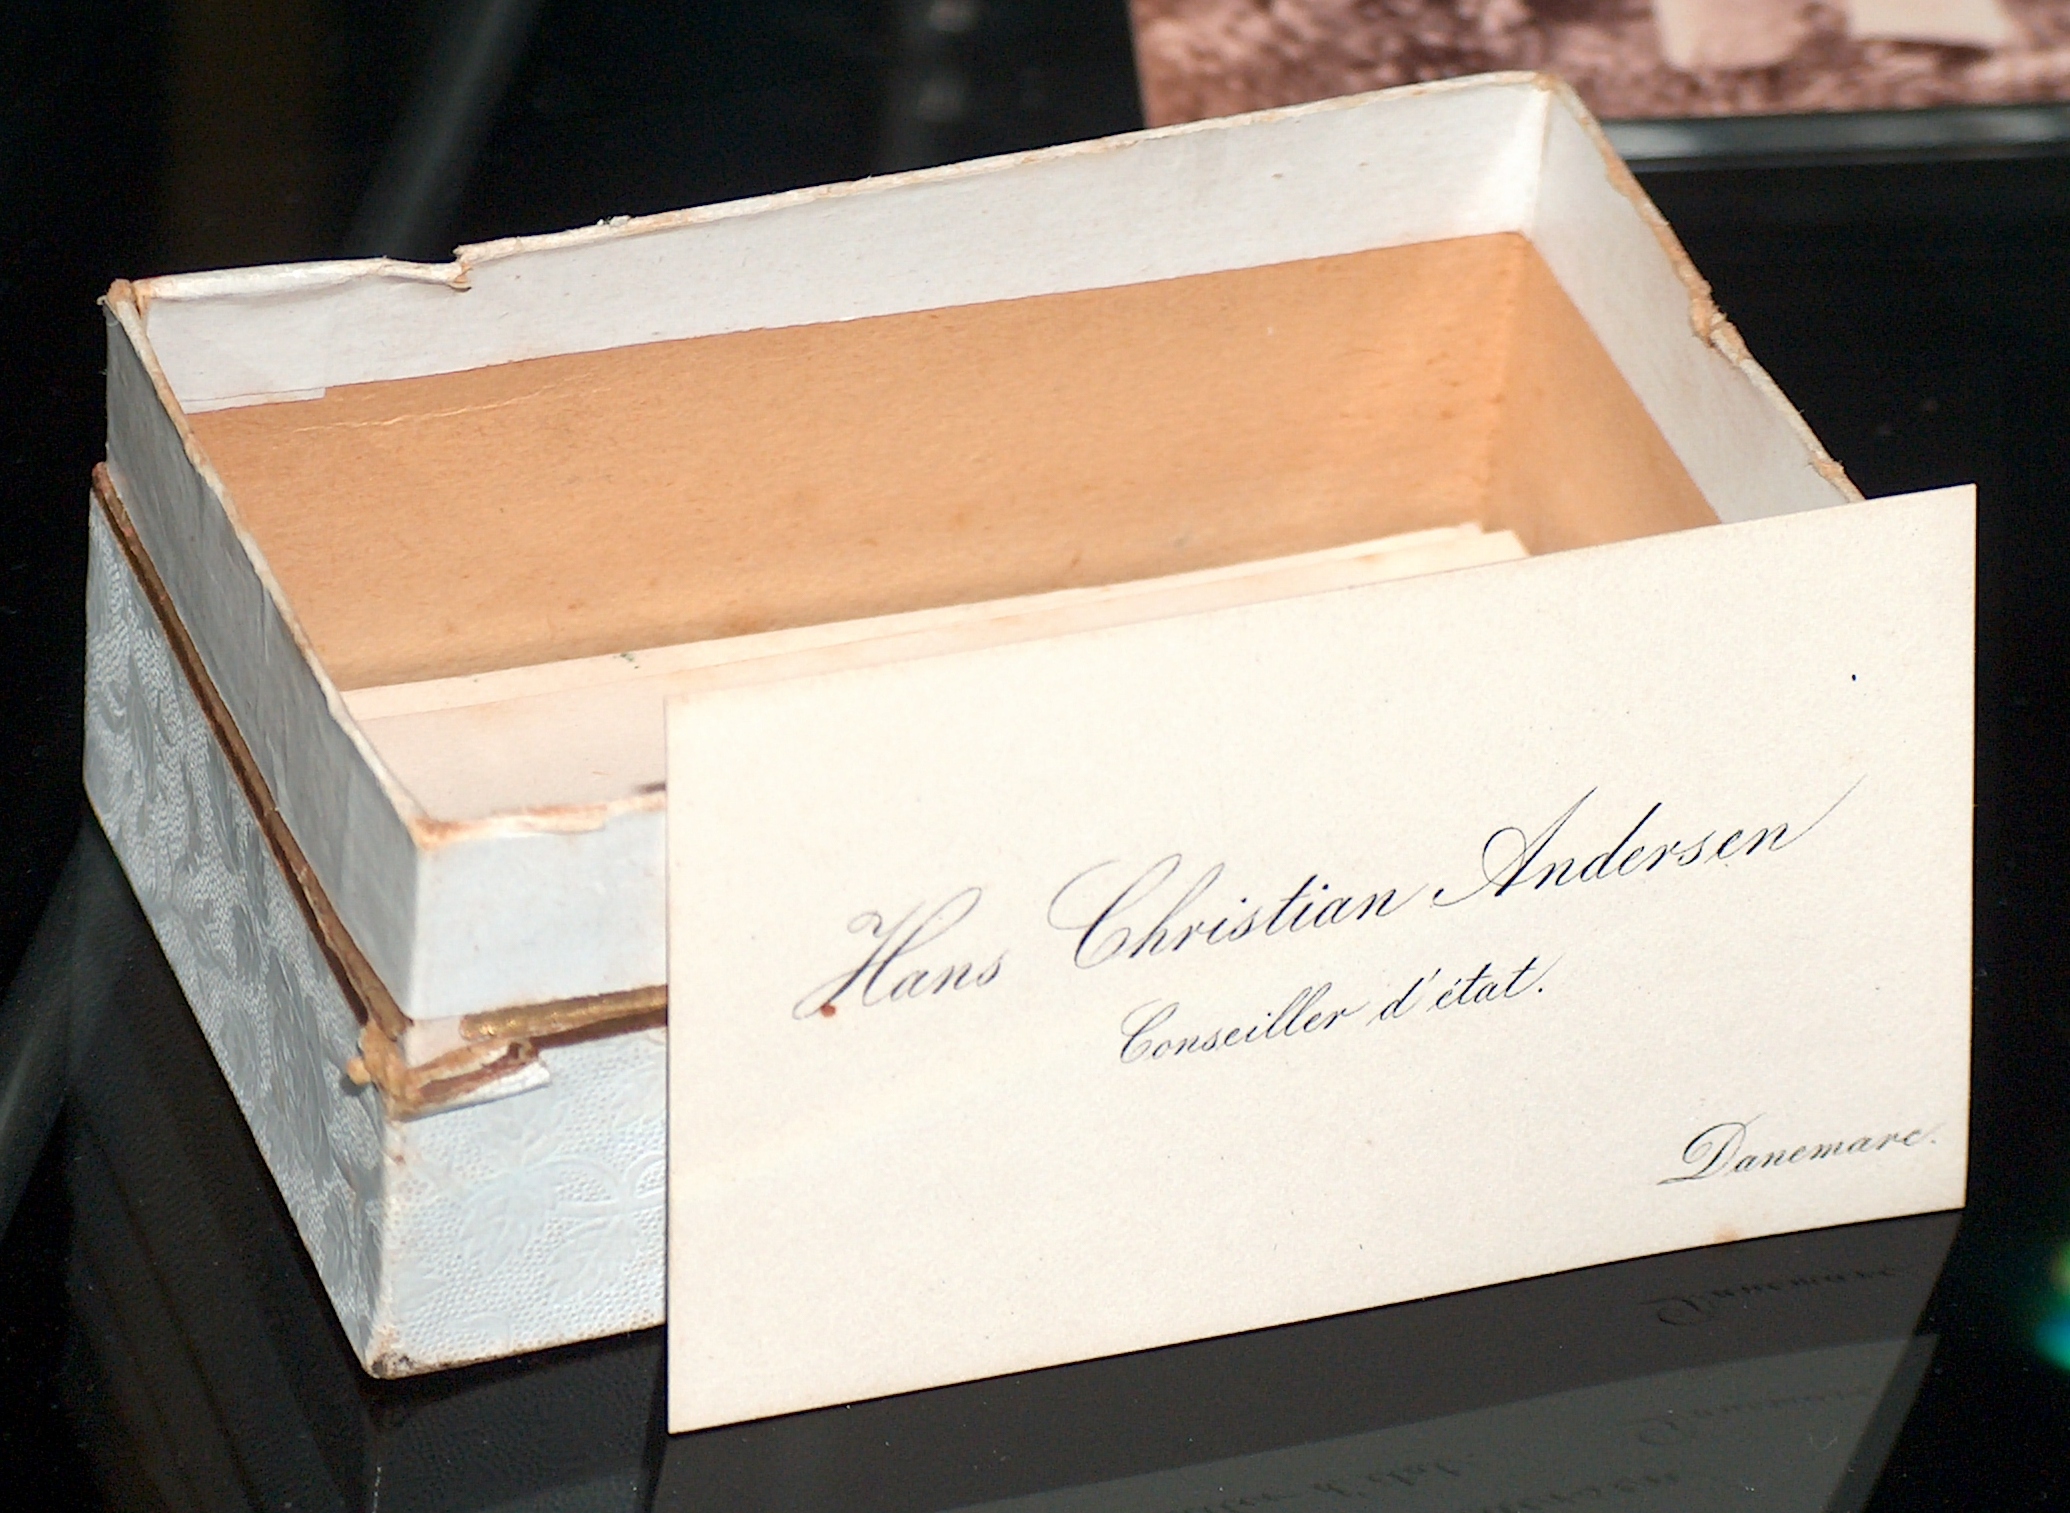 Hans Christian Andersen
Conseiller d'état.
Danemarc.